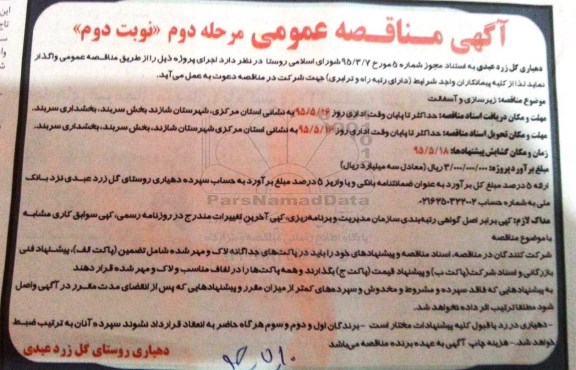 آگهی مناقصه عمومی مرحله دوم «نوبت دوم»
دهیاری گل زرد عبدی به استناد مجوز شماره ۵ مورخ ۹۵/۳/۷ شورای اسلامی روستا در نظر دارد اجرای پروژه ذیل را از طریق مناقصه عمومی واگذار
نماید لذا از کلیه پیمانکاران واجد شرایط (دارای رتبه راه و ترابری) جهت شرکت در مناقصه دعوت به عمل می‌آید.
موضوع مناقصه: زیرسازی و آسفالت
مهلت و مکان دریافت اسناد مناقصه: حداکثر تا پایان وقت اداری روز ۹۵/۵/ به نشانی استان مرکزی، شهرستان شازند، بخش سربند، بخشداری سربند.
مهلت و مکان تحویل اسناد مناقصه: حداکثر تا پایان وقت اداری روز ۹۵/۵/ به نشانی استان مرکزی، شهرستان شازند، بخش سربند، بخشداری سربند.
زمان و مکان گشایش پیشنهادها: ۹۵/۵/۱۸
مبلغ برآورد پروژه: ۳/۰۰۰/۰۰۰/۰۰۰ ریال (معادل سه میلیارد ریال)
ارائه ۵ درصد مبلغ کل برآورد به عنوان ضمانتنامه بانکی و یا واریز ۵ درصد مبلغ برآورد به حساب سپرده دهیاری روستای گل زرد عبدی نزد بانک
ملی به شماره حساب
ParsNamadData
مناک لازم: کپی برابر اصل گواهی رتبه‌بندی سازمان مدیریت و برنامه‌ریزی، کپی آخرین تغییرات مندرج در روزنامه رسمی، کپی سوابق کاری مشابه
با موضوع مناقصه
شرکت کنندگان در مناقصه، اسناد مناقصه و پیشنهادهای خود را باید در پاکت‌های جداگانه لاک و مهر شده شامل تضمین (پاکت الف)، پیشنهاد فنی
بازرگانی و اسناد شرکت (پاکت ب) و پیشنهاد قیمت (پاکت ج) بگذارند و همه پاکت‌ها را در لفاف مناسب و لاک و مهر شده قرار دهند
به پیشنهادهایی که فاقد سپرده و مشروط و مخدوش و سپرده‌های کمتر از میزان مقرر و پیشنهادهایی که پس از انقضای مدت مقرر در آگهی واصل
شود مطلقا ترتیب اثر داده نخواهد شد.
- دهیاری در رد یا قبول کلیه پیشنهادات مختار است - برندگان اول و دوم و سوم هرگاه حاضر به انعقاد قرارداد نشوند سپرده آنان به ترتیب ضبط
خواهد شد. - هزینه چاپ آگهی به عهده برنده مناقصه می‌باشد
دهیاری روستای گل زرد عبدی